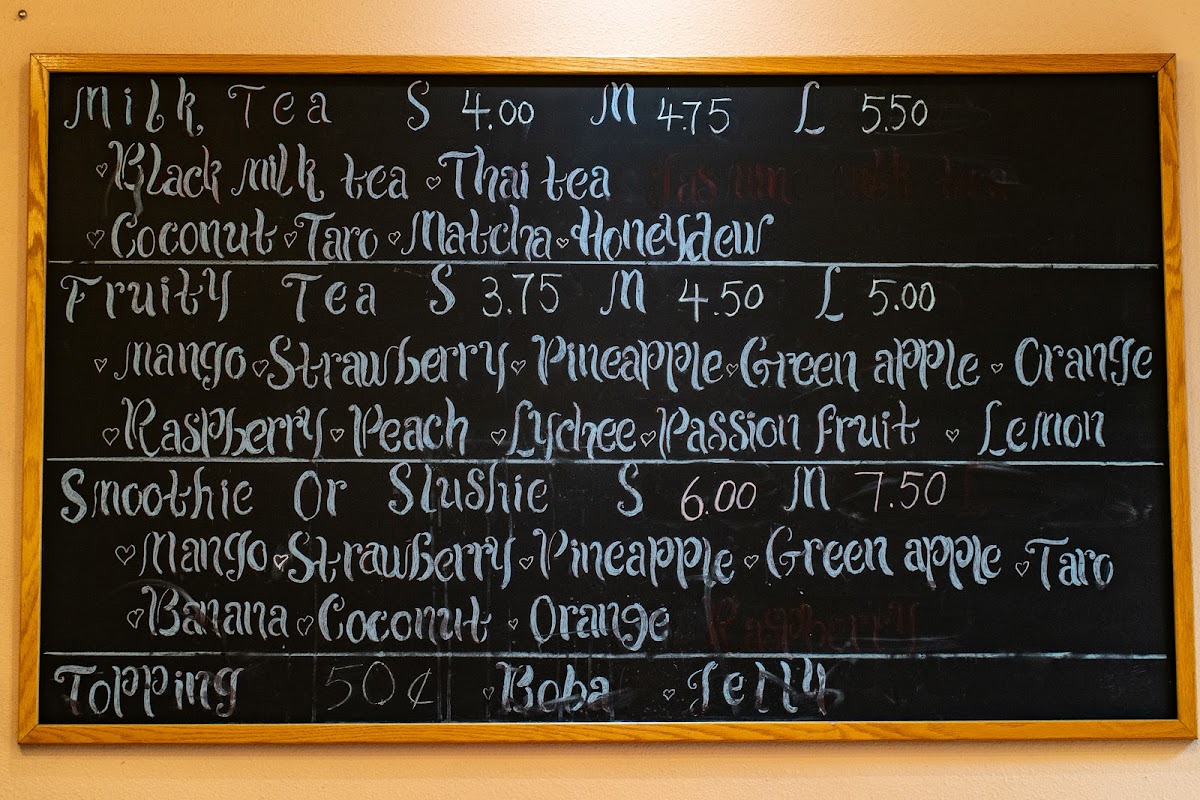 Milk Tea S 4.00 M 4.75 L 5.50
♡Black Milk tea ♡Thai tea
♡Coconut ♡Taro ♡Matcha ♡Honeydew
Fruity Tea S 3.75 M 4.50 L 5.00
♡Mango ♡Strawberry ♡Pineapple ♡Green apple ♡Orange
♡Raspberry ♡Peach ♡Lychee ♡Passion fruit ♡Lemon
Smoothie Or Slushie S 6.00 M 7.50
♡Mango ♡Strawberry ♡Pineapple ♡Green apple ♡Taro
♡Banana ♡Coconut ♡Orange Raspberry
Topping 50¢ ♡Boba ♡Jelly